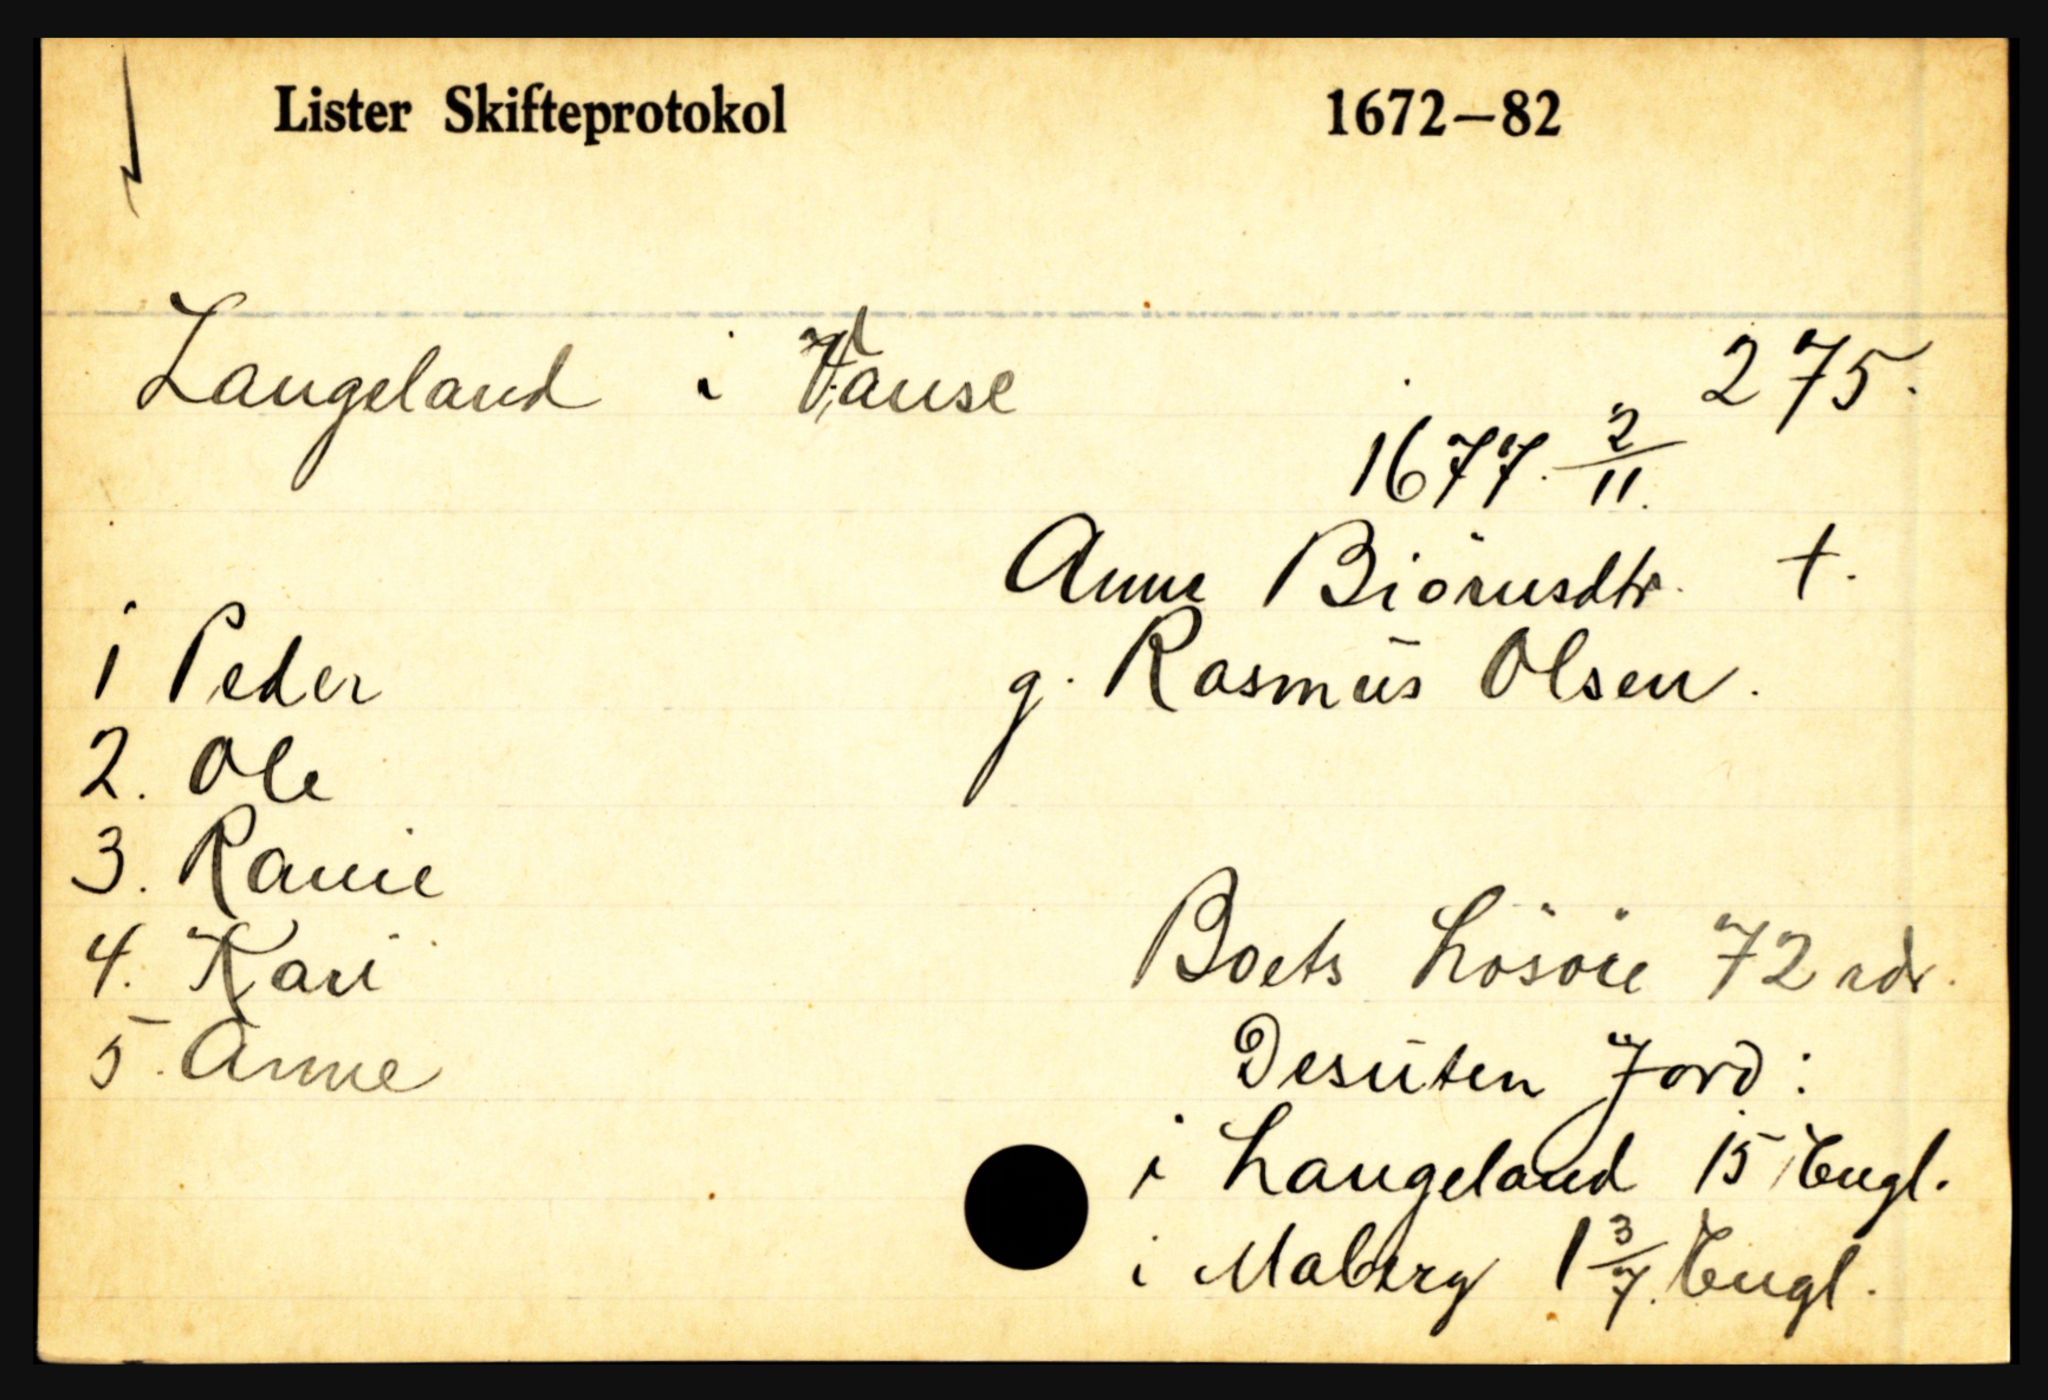 Lister Skifteprotokol 1672—82
Langeland i Vanse 275.
1677. 2/11.
Anne Biörnsdtr. †.
g. Rasmus Olsen.
1 Peder
2. Ole
3. Ranie
4. Kari
5. Anne
Boets Lösöre 72 rdr.
Desuten Jord:
i Langeland 15 Engl.
i Maberg 1 3/7. Engl.